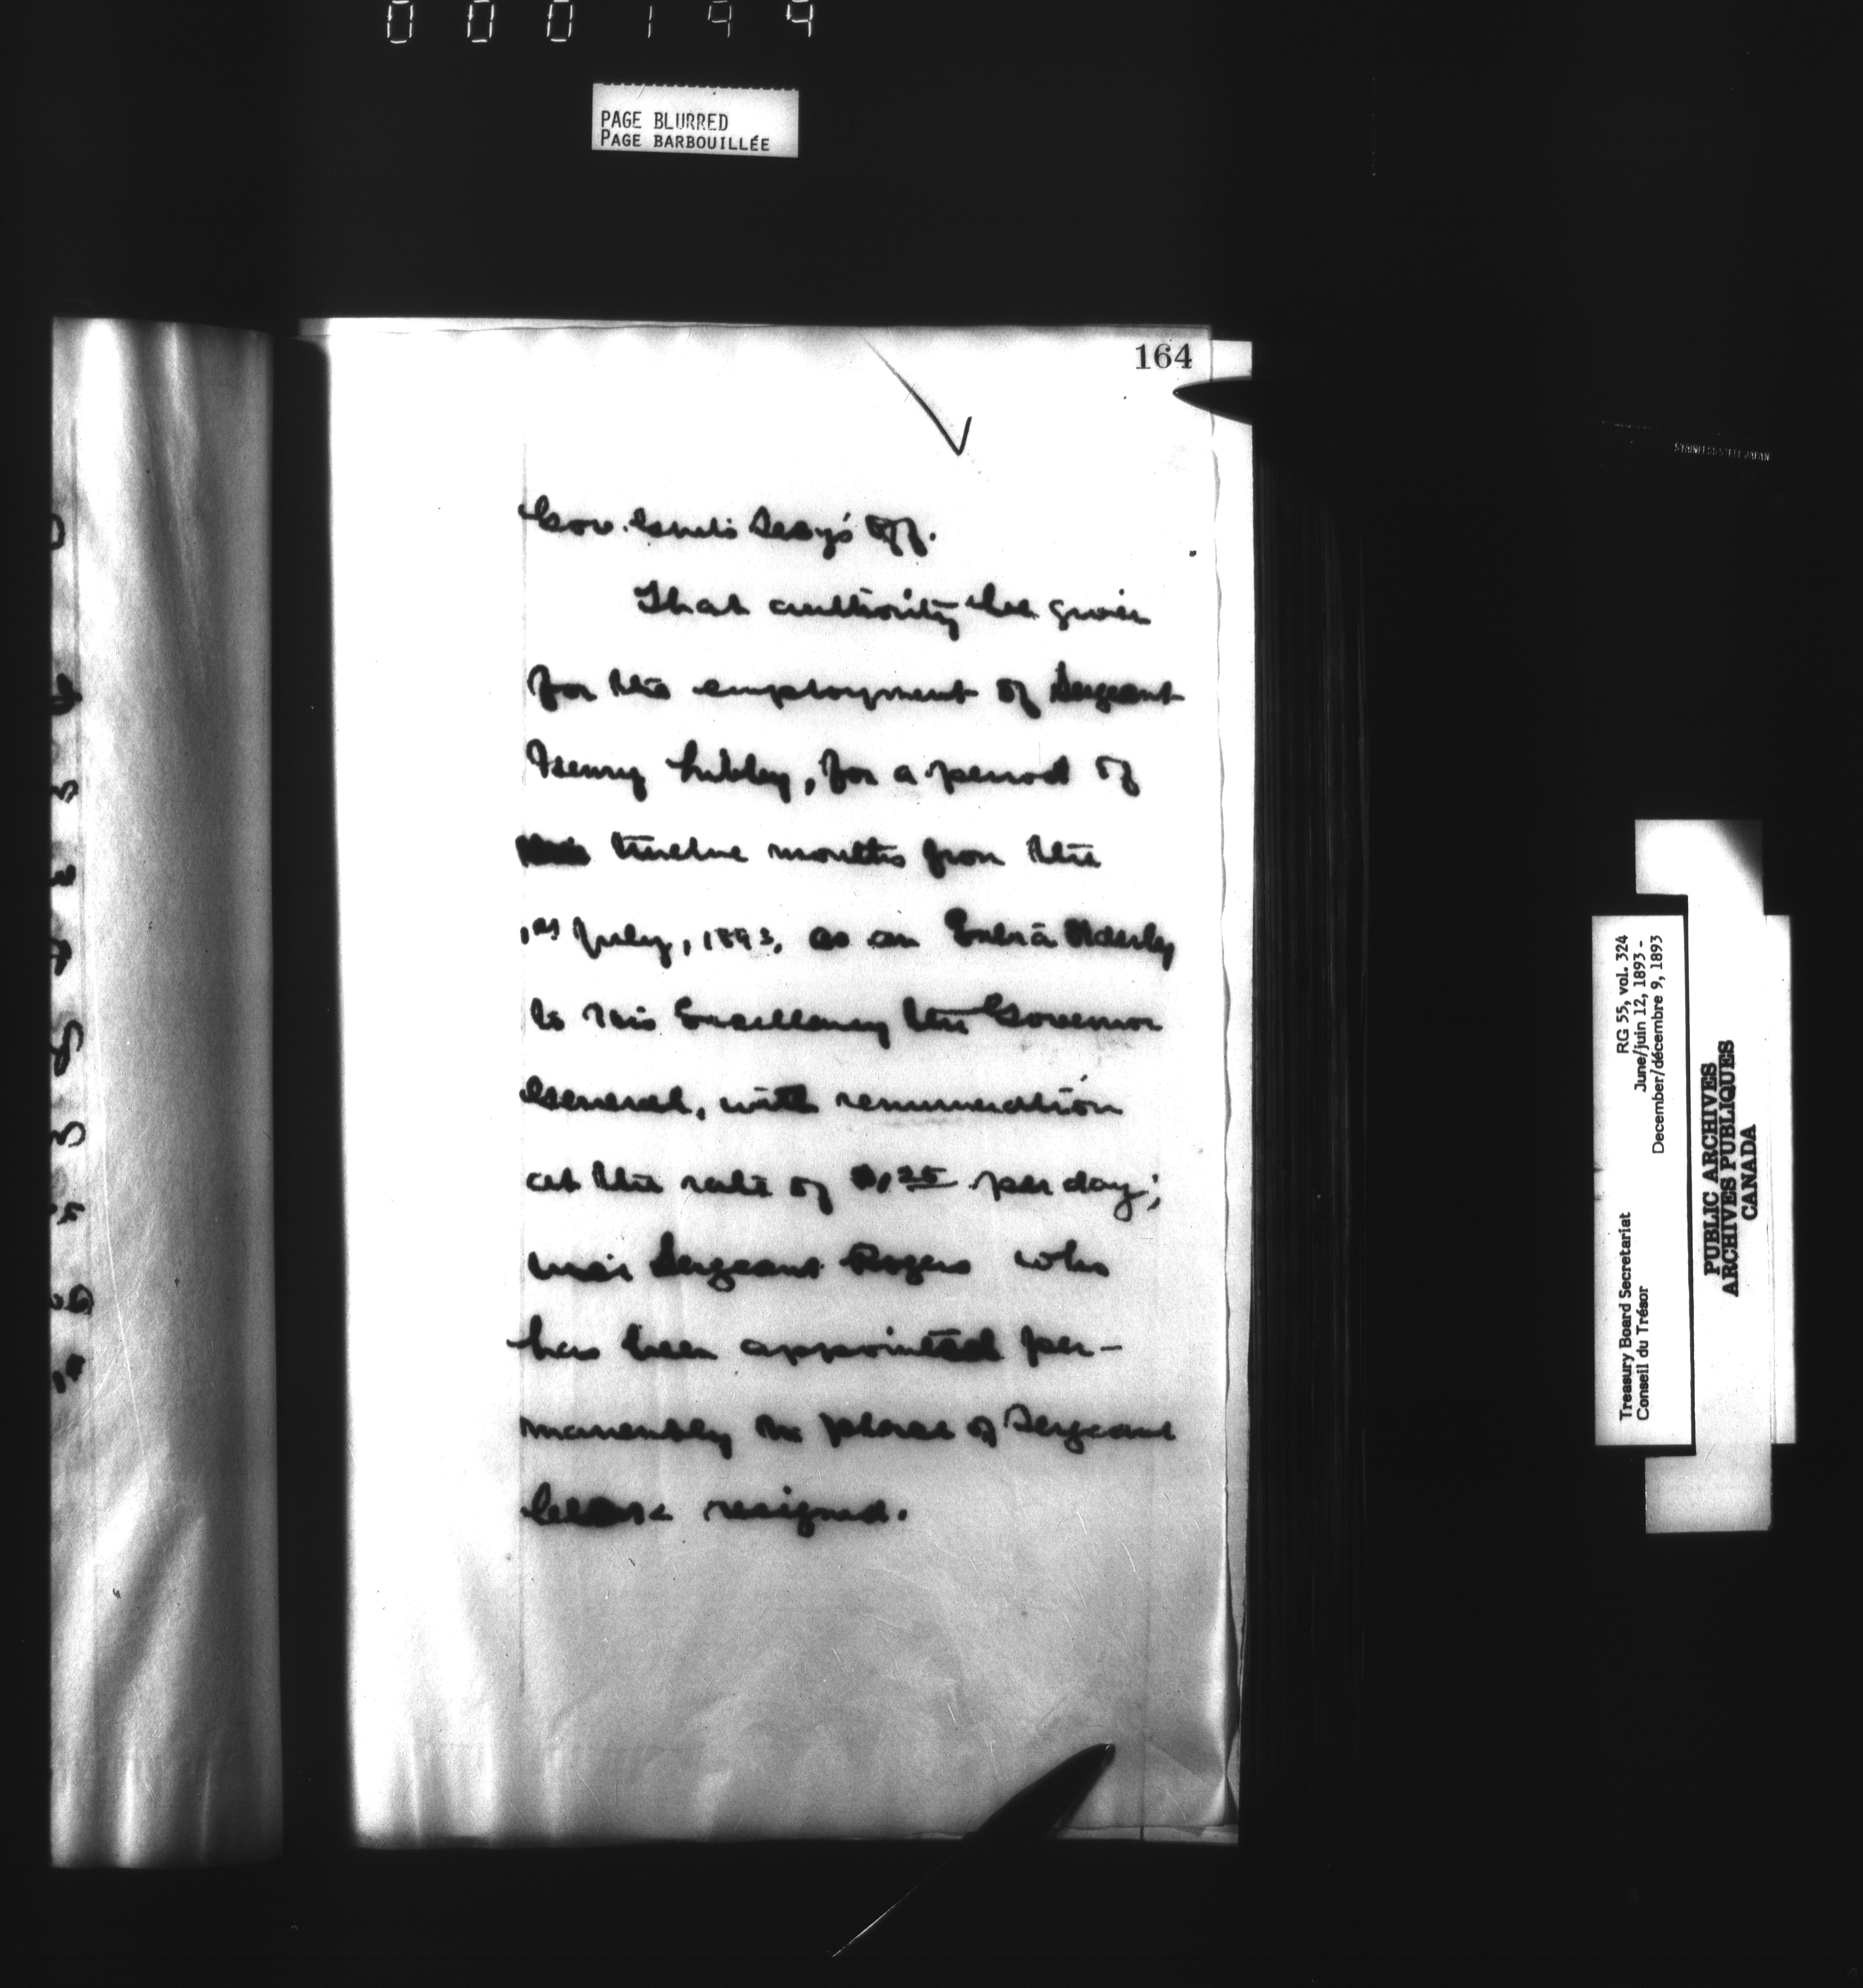 000194
PAGE BLURRED
PAGE BARBOUILLÉE
164
Gov. Genl's Secy's Off.
That authority be given
for the employment of Sergeant
Henry Libbey, for a period of
twelve months from the
1st July, 1893, as an Extra Orderly
to His Excellency the Governor
General, with remuneration
at the rate of $1.25 per day;
vice Sergeant Rogers who
has been appointed per-
manently in place of Sergeant
resigned.
RG 55, vol. 324
June/juin 12, 1893 -
December/décembre 9, 1893
Treasury Board Secretariat
Conseil du Trésor
PUBLIC ARCHIVES
ARCHIVES PUBLIQUES
CANADA